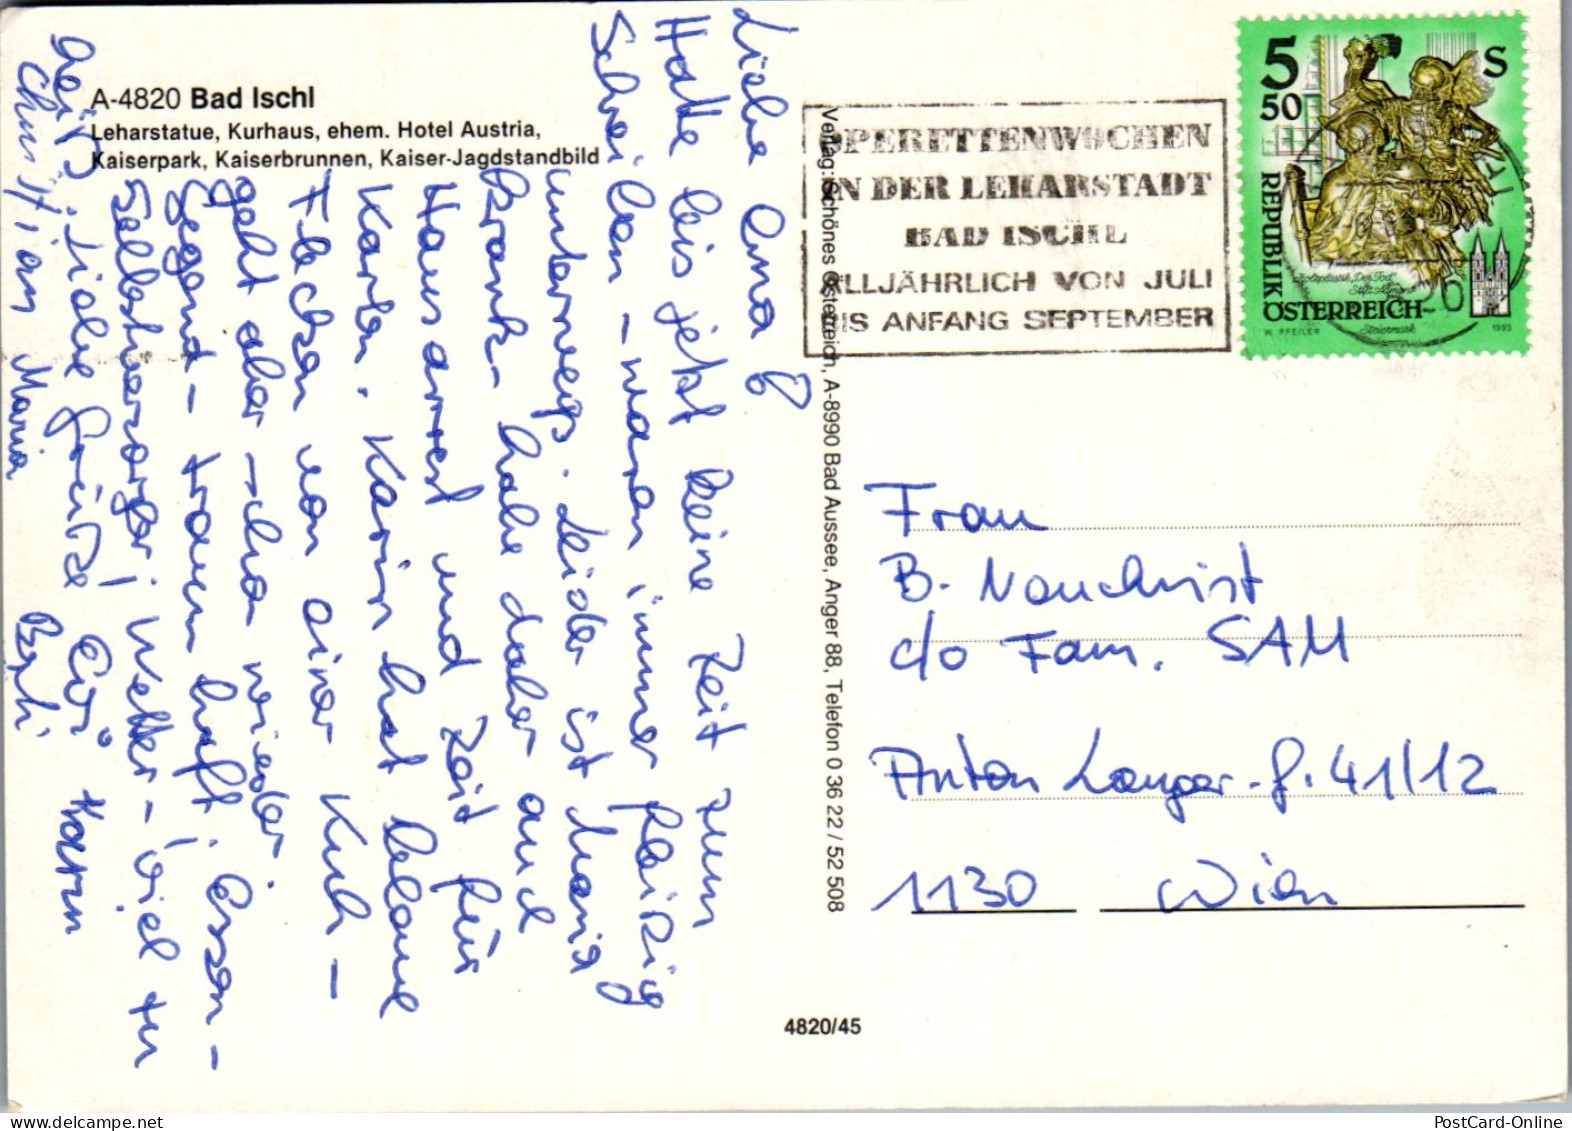 A-4820 Bad Ischl
Leharstatue, Kurhaus, ehem. Hotel Austria,
Kaiserpark, Kaiserbrunnen, Kaiser-Jagdstandbild
Liebe Oma!
Hatte bis jetzt keine Zeit zum
Schreiben - waren immer fleißig
unterwegs. Leider ist Maria
krank - habe daher auch
Hausarrest und Zeit für
Karten. Karin hat blaue
Flecken von einer Kuh -
geht aber schon wieder.
Gegend - traumhaft! Essen -
Selbstversorger! Wetter - viel zu
heiß. Liebe Grüße Evi Karin
Christian Maria Berti
Verlag: Schönes Österreich, A-8990 Bad Aussee, Anger 88, Telefon 0 36 22 / 52 508
4820/45
OPERETTENWOCHEN
IN DER LEHARSTADT
BAD ISCHL
ALLJÄHRLICH VON JULI
BIS ANFANG SEPTEMBER
5 S
50
REPUBLIK
ÖSTERREICH
Holzplastik "Der Tod"
Stift Admont
Steiermark
W. PFEILER
1993
Frau
B. Nouchrist
c/o Fam. SAM
Anton Langer-g. 41/12
1130 Wien
PostCard-Online